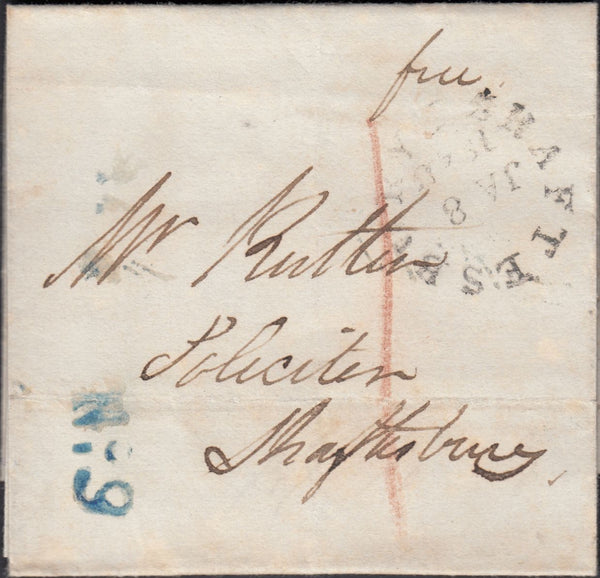 free
SHAFTESBURY
JA 8
1840
Mr Rutter
Soliciter
Shaftesbury
No 9